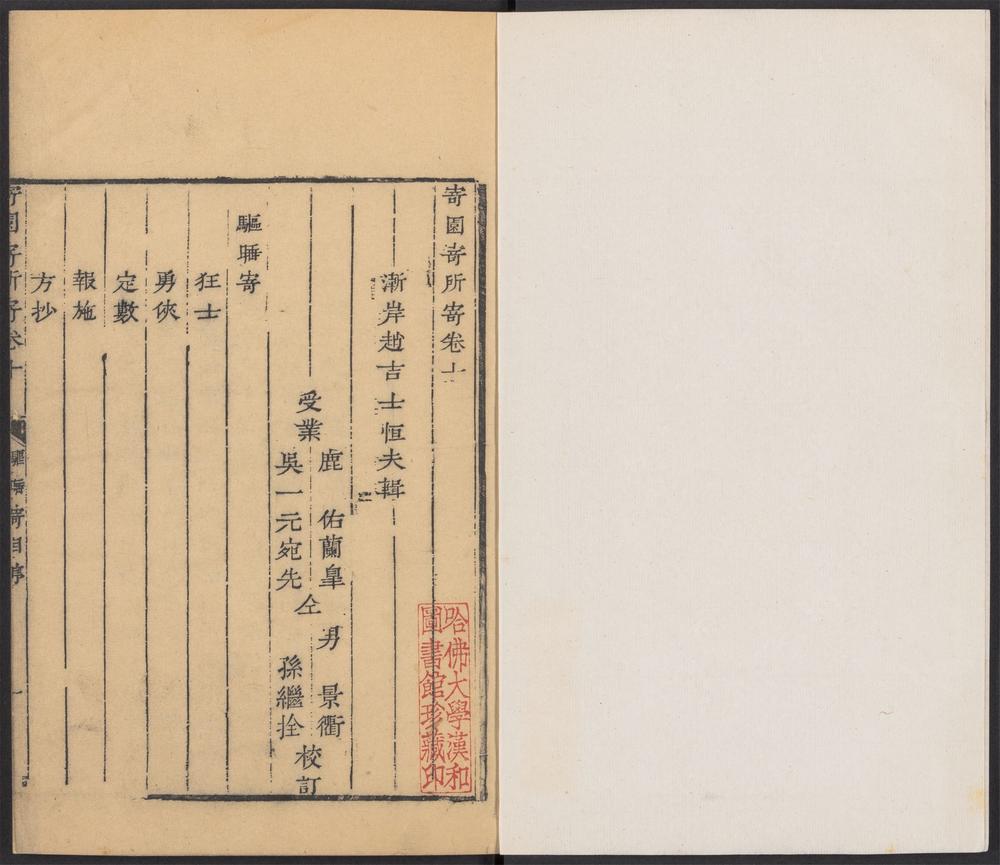 寄園寄所寄卷十
漸岸趙吉士恒夫輯
受業
鹿 佑蘭臯
吳一元宛先
仝
男 景衢
孫繼拴
校訂
驅睡寄
狂士
勇俠
定數
報施
方抄
寄園寄所寄卷十
驅睡寄目
一
哈佛大學漢和
圖書館珍藏印